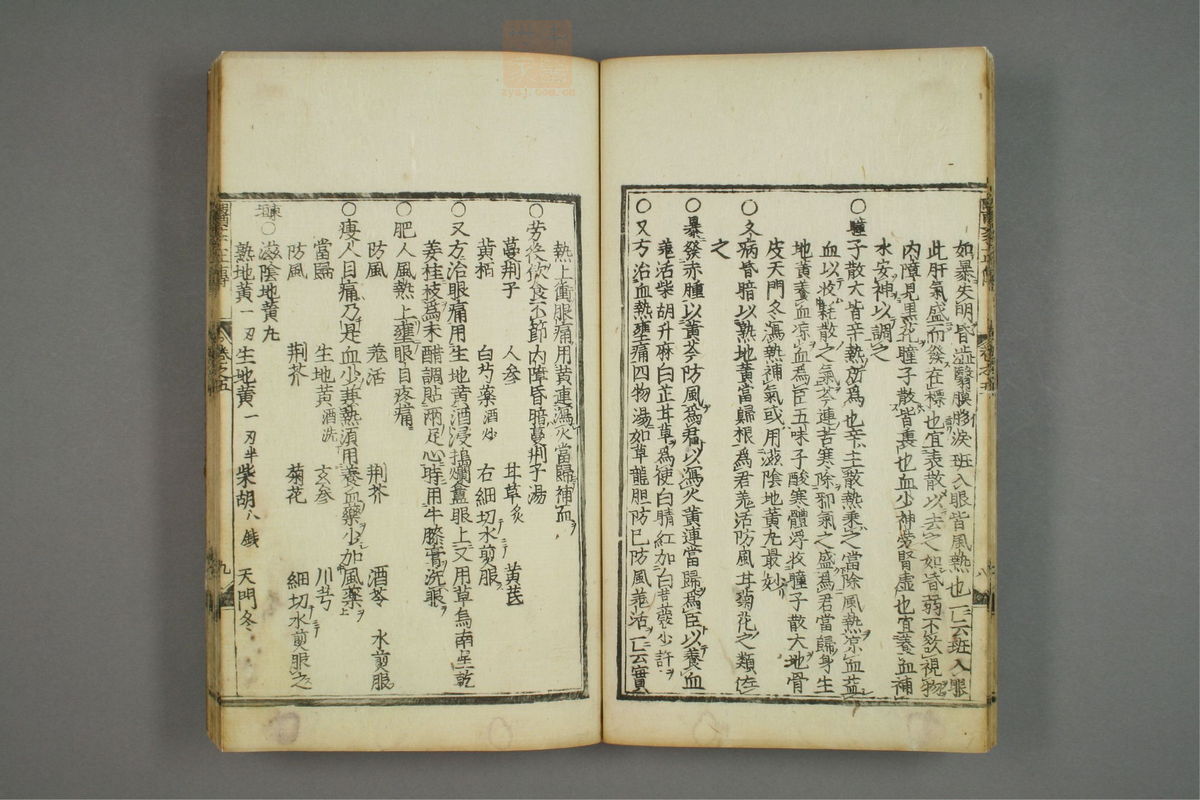 如暴失明昏澁翳膜眵淚班入眼皆風熱也一云班入眼
此肝氣盛而發在標也宜表散以去之如昏弱不欲視物
内障見黒花瞳子散皆裏也血少神労腎虚也宜養血補
水安神以調之
○瞳子散大皆辛熱所為也辛主散熱乗之當除風熱凉血益
血以收耗散之氣芩連苦寒除邪氣之盛為君當歸身生
地黄養血凉血為臣五味子酸寒體浮收瞳子散大地骨
皮天門冬瀉熱補氣或用滋陰地黄丸最妙
○久病昏暗以熟地黄當歸根為君羗活防風甘菊花之類佐
之
○暴發赤腫以黄芩防風為君以瀉火黄連當歸為臣以養血
羗活柴胡升麻白芷甘草為使白睛紅加白荳蔲少許
○又方治血熱壅痛四物湯如草龍胆防巳防風羗活一云實
熱上衝眼痛用黄連瀉火當歸補血
○労後飲食不節内障昏暗蔓荆子湯
蔓荆子 人参 甘草炙 黄芪
黄栢 白芍薬酒炒 右細切水煎服
○又方治眼痛用生地黄酒浸搗爛盦眼上又用草烏南星乾
姜桂枝為末醋調貼兩足心時用牛膝膏洗眼
○肥人風熱上壅眼目疼痛
防風 羗活 荆芥 酒芩 水煎服
○瘦人目痛乃是血少兼熱須用養血藥少加風藥
當歸 生地黄酒洗 玄参 川芎
防風 荆芥 菊花 細切水煎服之
東垣○滋陰地黄丸
熟地黄一刃 生地黄一刃半 柴胡八銭 天門冬